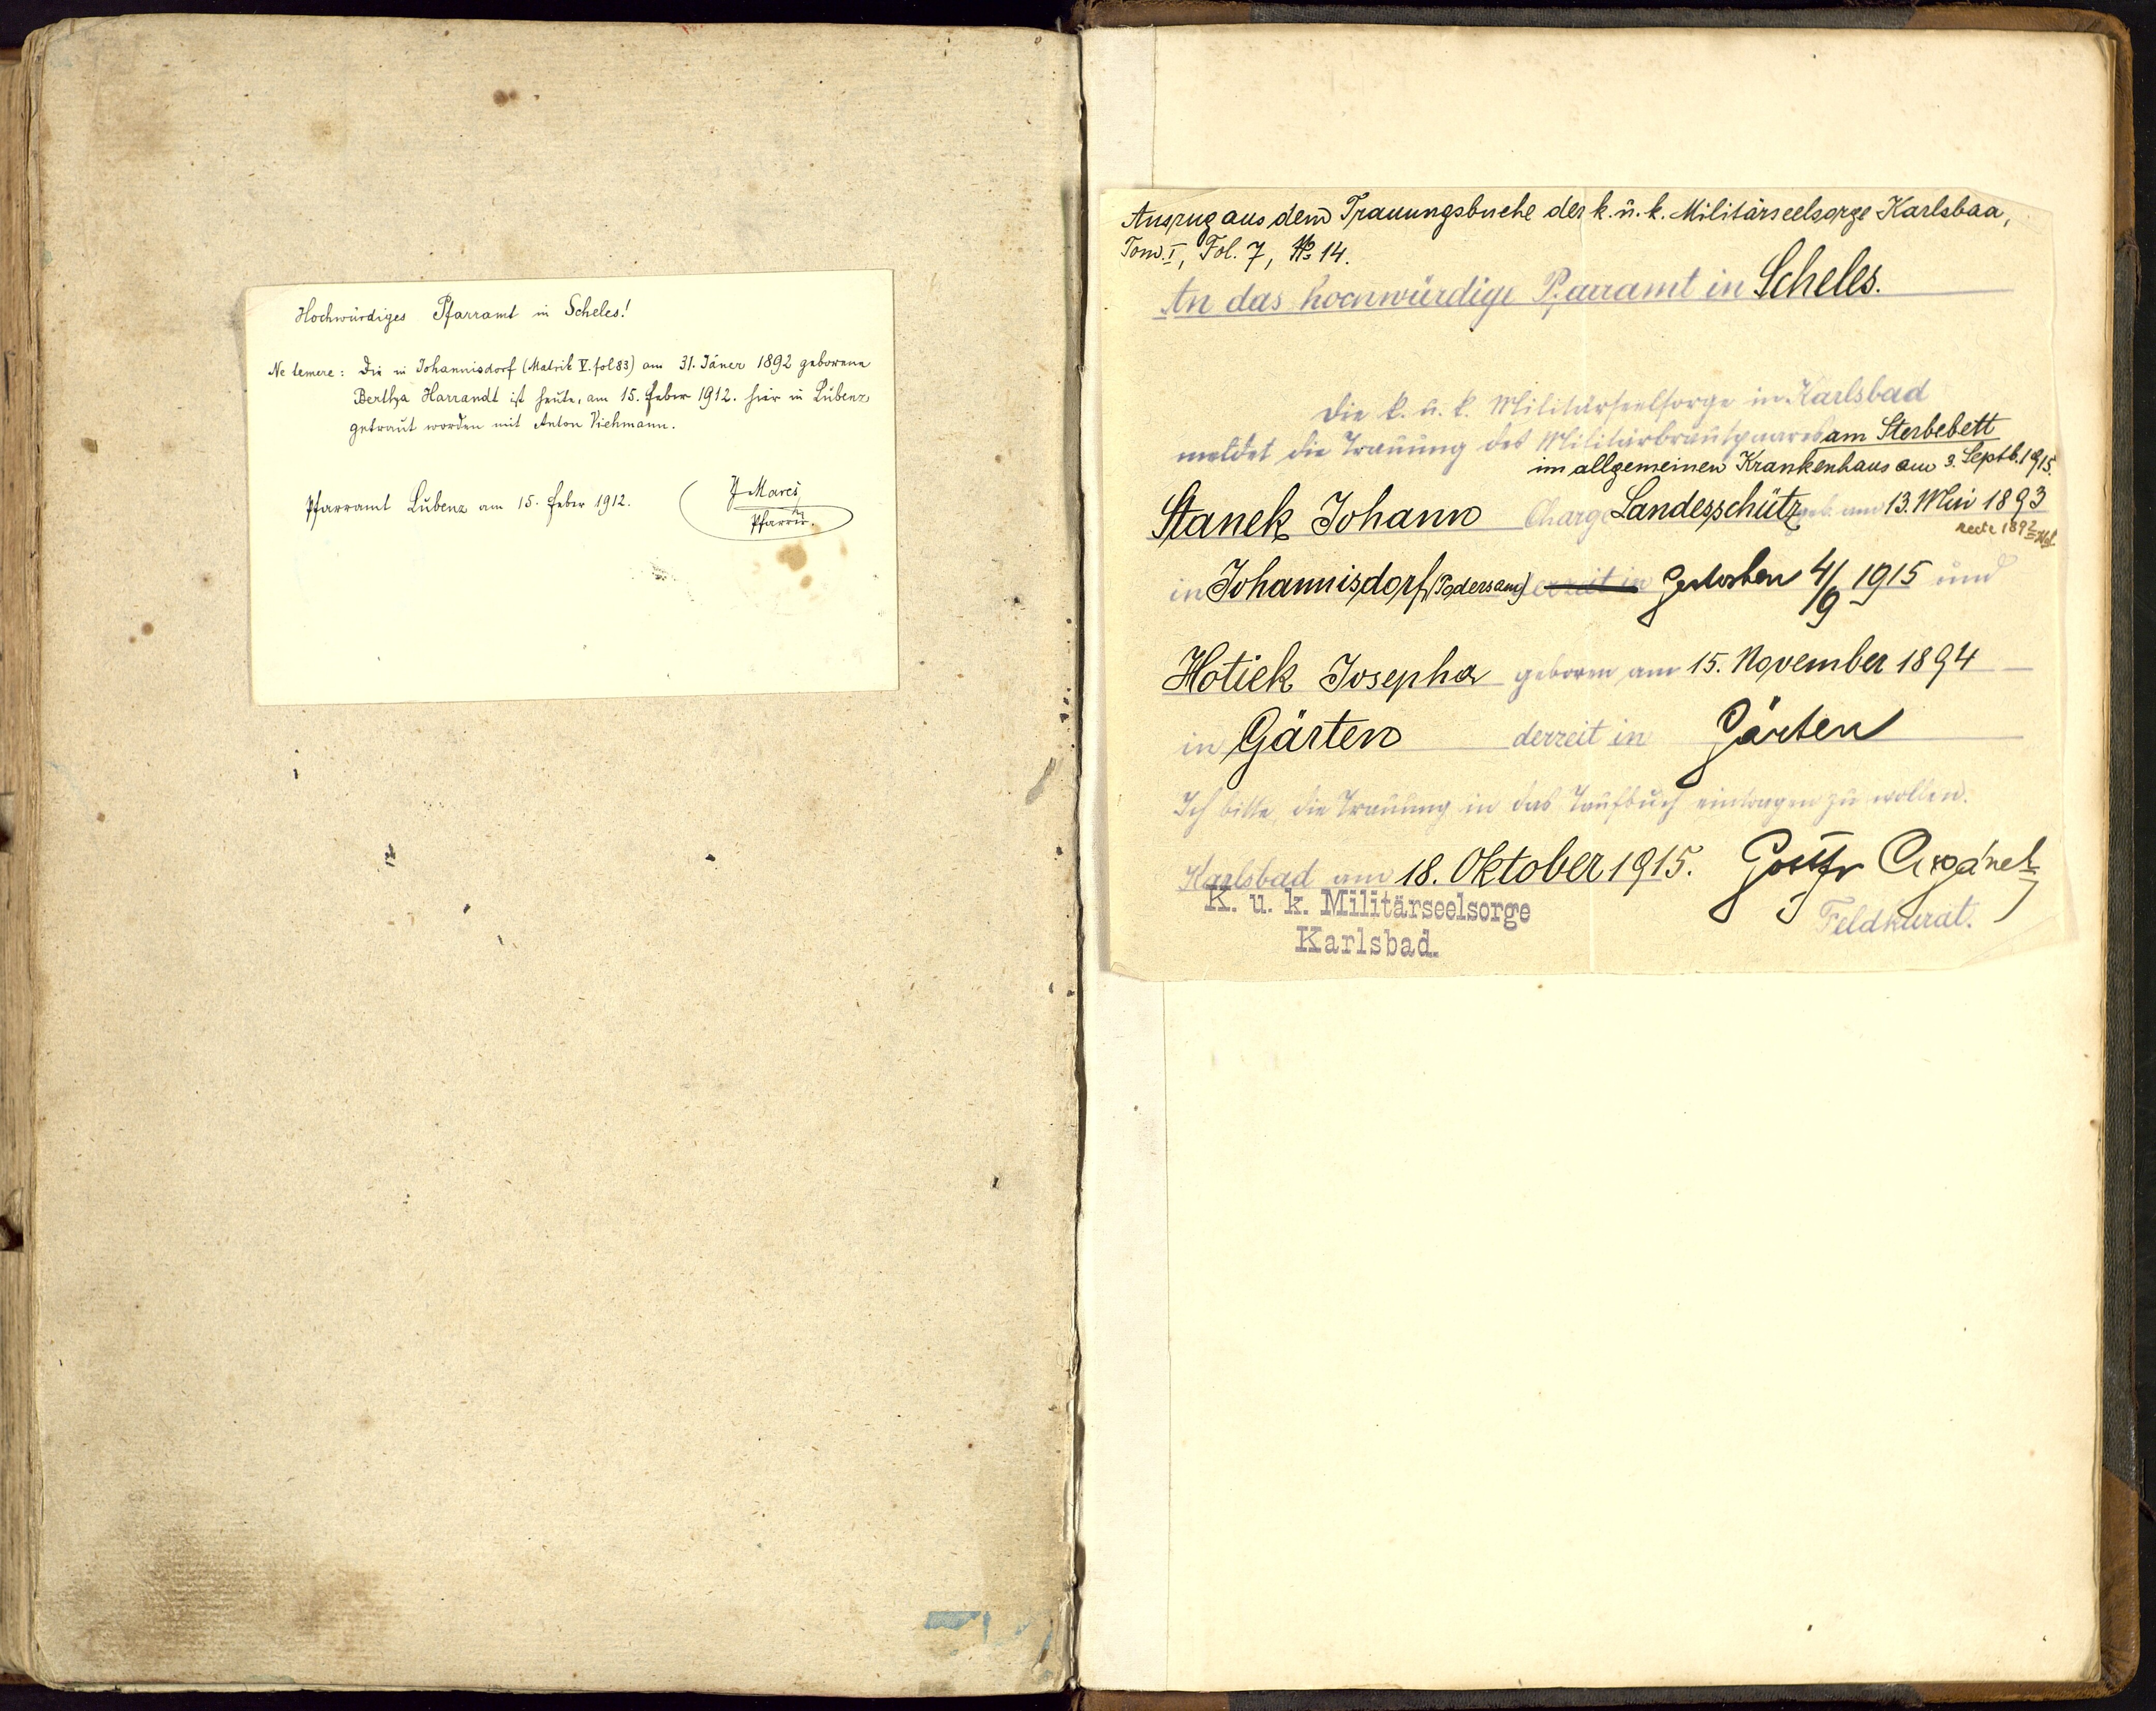 Hochwürdiges Pfarramt in Scheles!
Ne temere: Die in Johannisdorf (Matrik V. fol 83) am 31. Jäner 1892 geborene
Bertha Harrandt ist heute, am 15. Feber 1912. hier in Lubenz
getraut worden mit Anton Viehmann.
Pfarramt Lubenz am 15. Feber 1912.
Pfarrer.
Auszug aus dem Trauungsbuche der k. u. k. Militärseelsorge Karlsbad,
Tom. I, Fol. 7, № 14.
An das hochwürdige Pfarramt in Scheles.
Die k. u. k. Militärseelsorge in Karlsbad
meldet die Trauung des Militärbrautpaares am Sterbebett
im allgemeinen Krankenhaus am 3. Septb. 1915.
Stanek Johann Charge Landesschütz geb. am 13. Mai 1893
recte 1892
in Johannisdorf (Podersam) derzeit in Gestorben 4/9 1915 und
Hotiek Josepha geboren am 15. November 1894
in Gärten derzeit in Gärten
Ich bitte, die Trauung in das Taufbuch eintragen zu wollen.
Karlsbad am 18. Oktober 1915.
K. u. k. Militärseelsorge
Karlsbad.
Feldkurat.